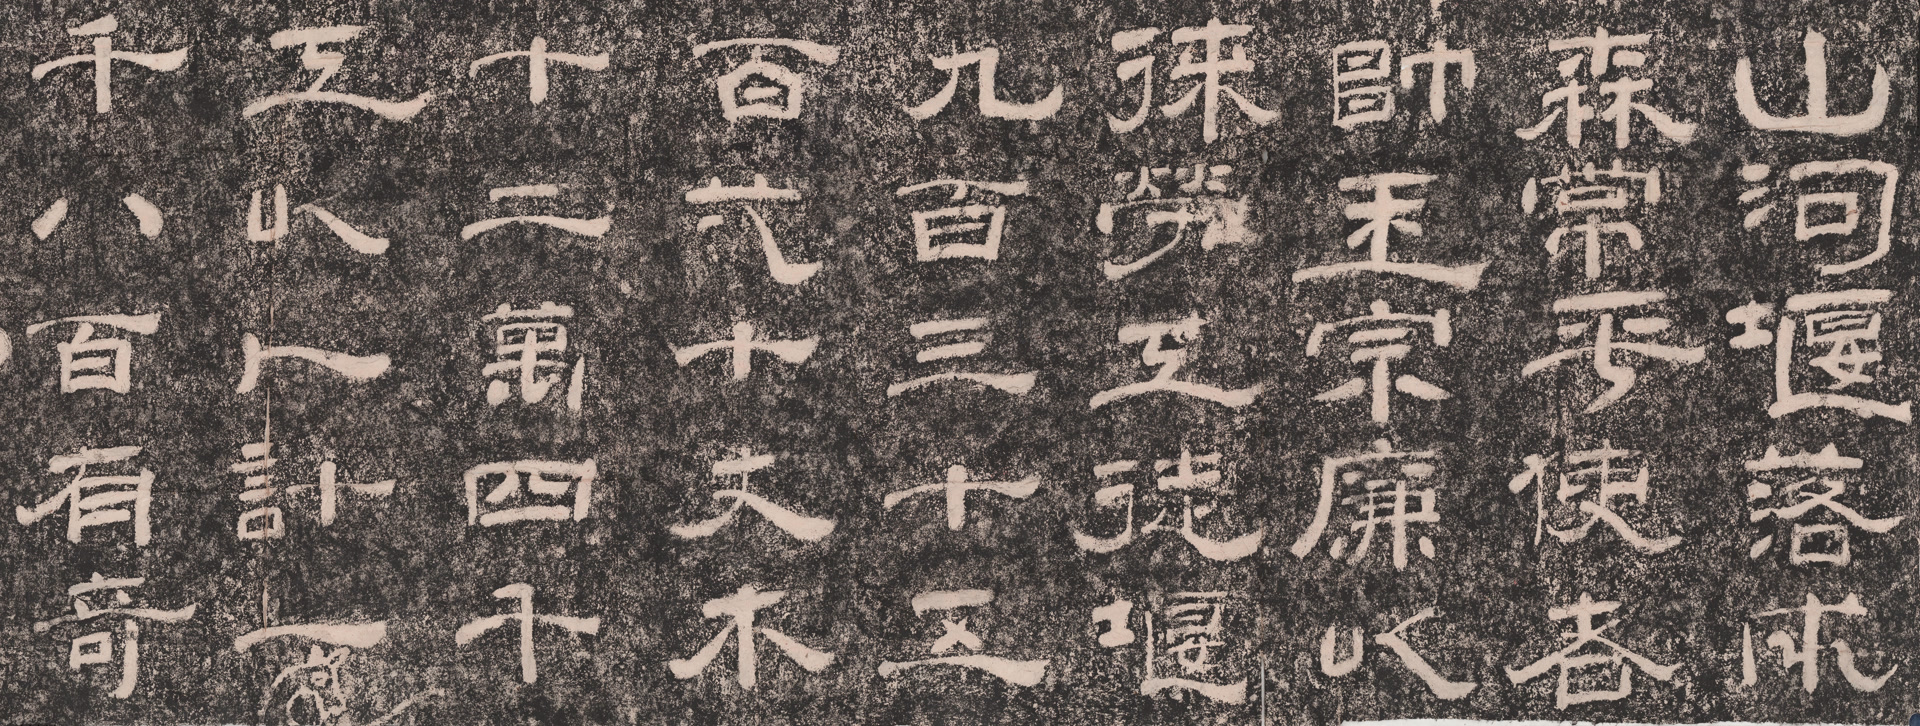 山河堰落成
森常平使者
帥王宗廉以
徠勞工徒堰
九百三十五
百十丈木
十二萬四千
工以人計一
千八百有奇